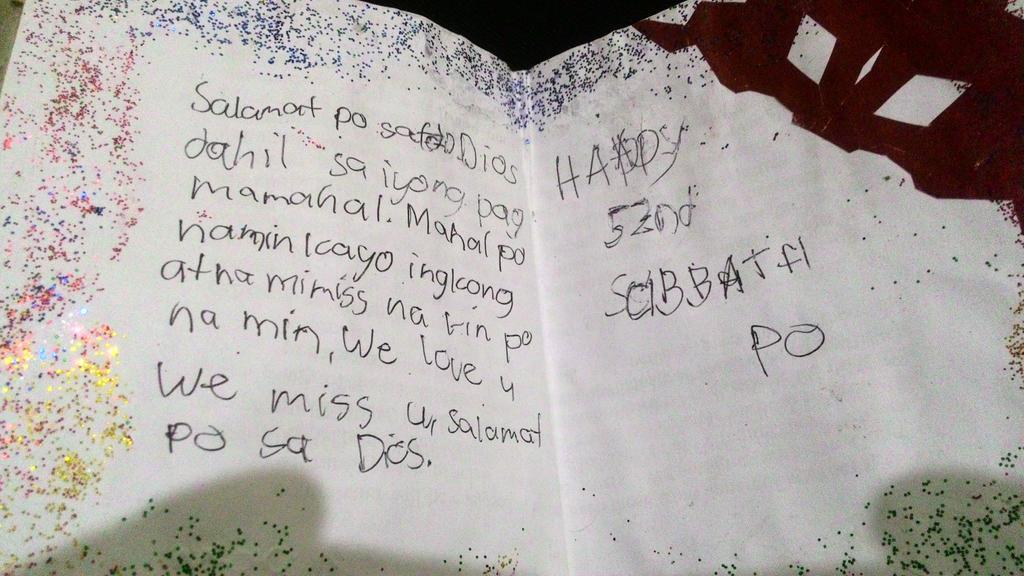 Salamat po sa Dios
dahil sa iyong pag
mamahal. Mahal po
namin kayo ingkong
at na mimiss na rin po
na min, We love u
We miss u, salamat
po sa Dios.
HAPPY
52nd
SABBATH
PO